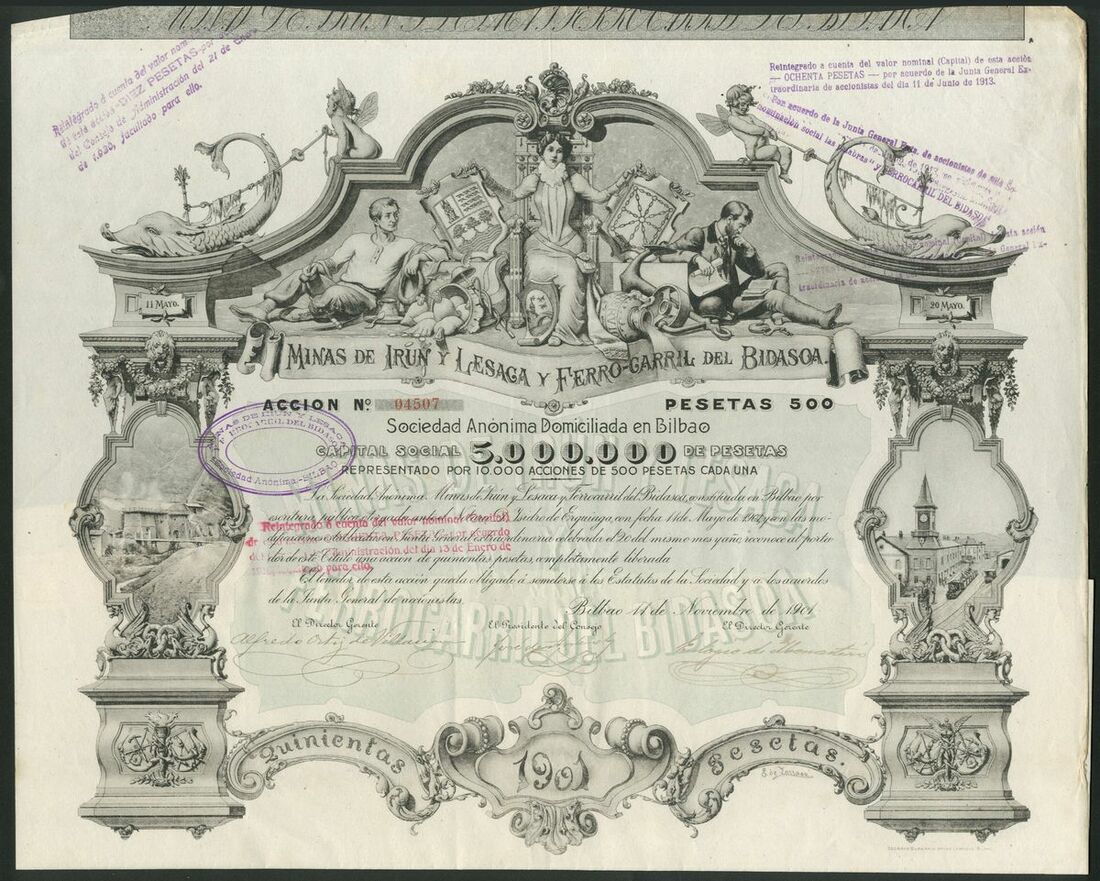 Reintegrado á cuenta del valor nom
de esta acción DIEZ PESETAS por
del Consejo de Administración del 21 de Enero
de 1.920, facultado para ello.
Reintegrado a cuenta del valor nominal (Capital) de esta acción
— OCHENTA PESETAS — por acuerdo de la Junta General Ex-
traordinaria de accionistas del dia 11 de Junio de 1913.
Por acuerdo de la Junta General Extra. de accionistas de esta So-
nominación social las palabras "y FERROCARRIL DEL BIDASOA
11 MAYO.
20 MAYO.
MINAS DE IRÚN Y LESACA Y FERRO-CARRIL DEL BIDASOA.
ACCION Nº 04507
PESETAS 500
Sociedad Anónima Domiciliada en Bilbao
CAPITAL SOCIAL 5.000.000 DE PESETAS
REPRESENTADO POR 10.000 ACCIONES DE 500 PESETAS CADA UNA
MINAS DE IRUN Y LESACA
Y FERROCARRIL DEL BIDASOA
Sociedad Anónima.-BILBAO
La Sociedad Anónima Minas de Irún y Lesaca y Ferrocarril del Bidasoa, constituida en Bilbao por
escritura pública otorgada ante el Notario D. Isidro de Erquiaga, con fecha 11 de Mayo de 1901 y con las mo-
dificaciones establecidas en Junta General extraordinaria celebrada el 20 del mismo mes y año reconoce al porta-
dor de este Título una acción de quinientas pesetas, completamente liberada
Reintegrado á cuenta del valor nominal (Capital)
de
por acuerdo
Administración del dia 13 de Enero de
para ello.
El tenedor de esta acción queda obligado á someterse á los Estatutos de la Sociedad y a los acuerdos
de la Junta General de accionistas.
Bilbao 11 de Noviembre de 1901
El Director Gerente
El Presidente del Consejo
El Director Gerente
Alfredo Ortiz de
Quinientas
1901
Pesetas.